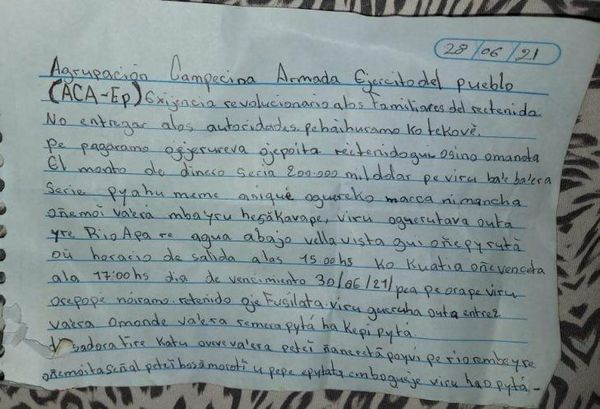 28/06/21
Agrupación Campecina Armada Ejercito del pueblo
(ACA-Ep) Exijencia revolucionario a los familiares del rectenido
No entregar alos autoridades. pehaihuramo ko tekovè.
Pe pagaramo ojejerureva ojepoita rectenidogui osino omanota
El monto de dinero seria 200.000 mil dolar pe viru ba'e ba'era
Serie pyahu meme ani que oguereko marca ni mancha
oñemoi va'erã mbayru hesãkavape, viru oguerutava outa
yre Rio Apa re agua abajo vella vista gui oñepyrutà
oú horacio de salida alas 15:00hs ko Kuatia oñevenceta
ala 17:00hs dia de vencimiento 30/06/21/pea pe orape viru
orepope noiramo retenido oje Fusilata viru guerruha outa entrez
va'era omonde va'era remera pytá ha kepi pytá
Tire katu ouvevalera peteĩ pe rio rembeyre
oñemoita señal peteĩ morotĩ u pepe epytata embogueje viru hao pytá-